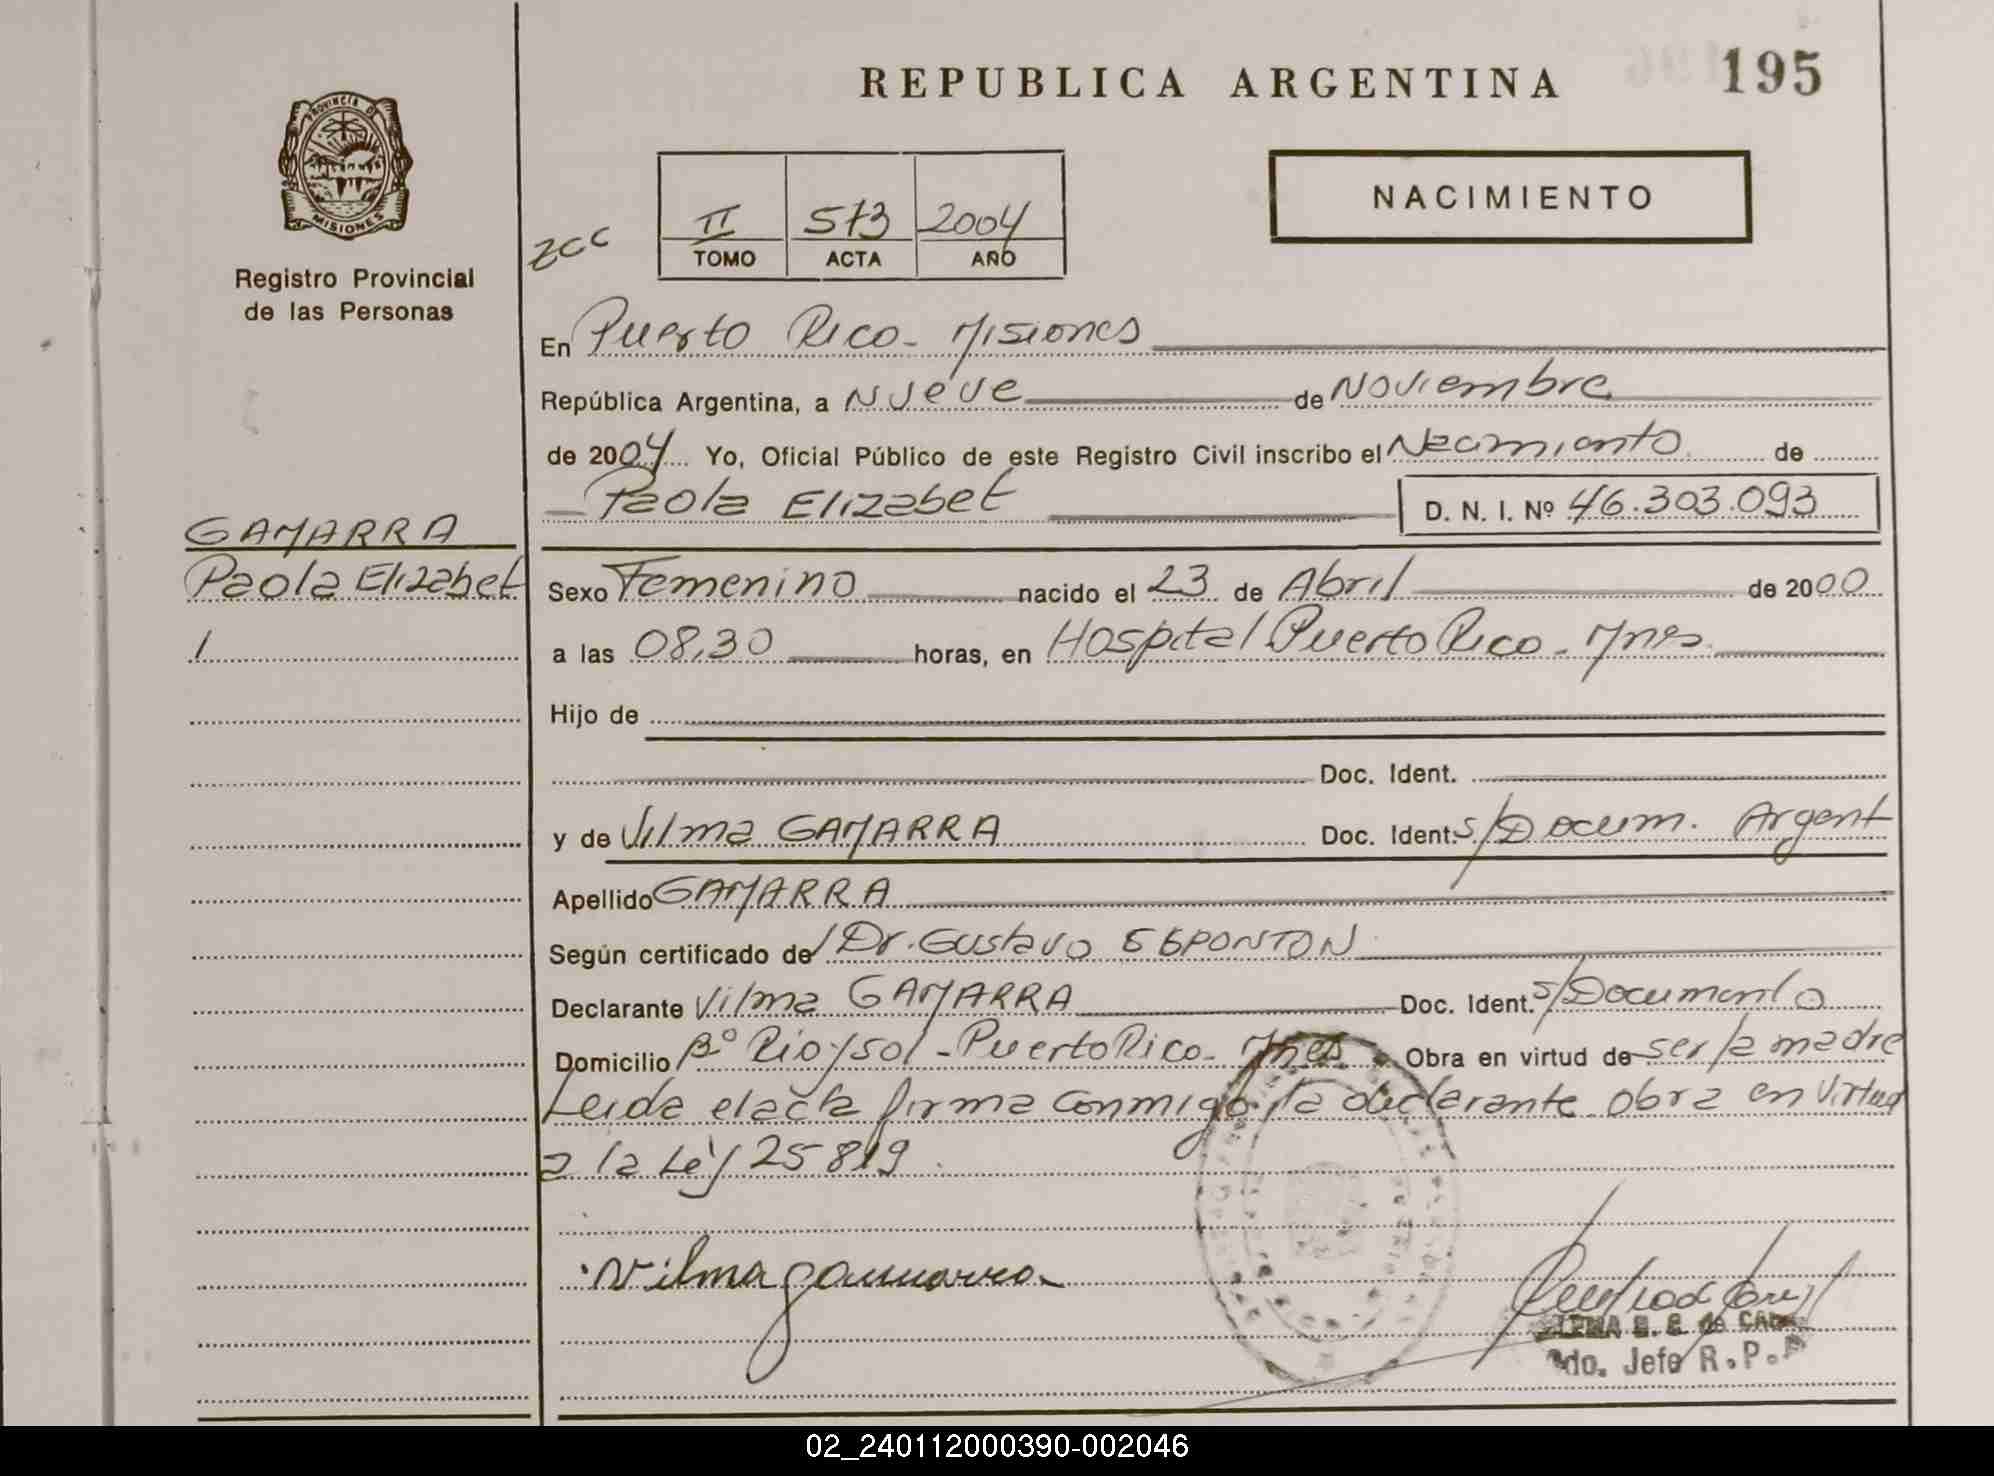 REPUBLICA ARGENTINA
195
PROVINCIA D
MISIONES
Registro Provincial
de las Personas
NACIMIENTO
zcc
II 573 2004
TOMO ACTA AÑO
En Puerto Rico - Misiones
República Argentina, a Nueve de Noviembre
de 2004 Yo, Oficial Público de este Registro Civil inscribo el Nacimiento de
Paola Elizabet D. N. I. Nº 46.303.093
GAMARRA
Paola Elizabet
1
Sexo Femenino nacido el 23 de Abril de 2000
a las 08,30 horas, en Hospital Puerto Rico - Mnes.
Hijo de
Doc. Ident.
y de Vilma GAMARRA Doc. Ident. s/Docum. Argent
Apellido GAMARRA
Según certificado de Dr. Gustavo ESPONTON
Declarante Vilma GAMARRA Doc. Ident. s/Documento
Domicilio Bº Rio y sol - Puerto Rico - Mnes Obra en virtud de ser la madre
Leida el acta firma conmigo la declarante obra en virtud
a la Ley 25819.
Vilma gamarra
do. Jefe R.P.P
02_240112000390-002046